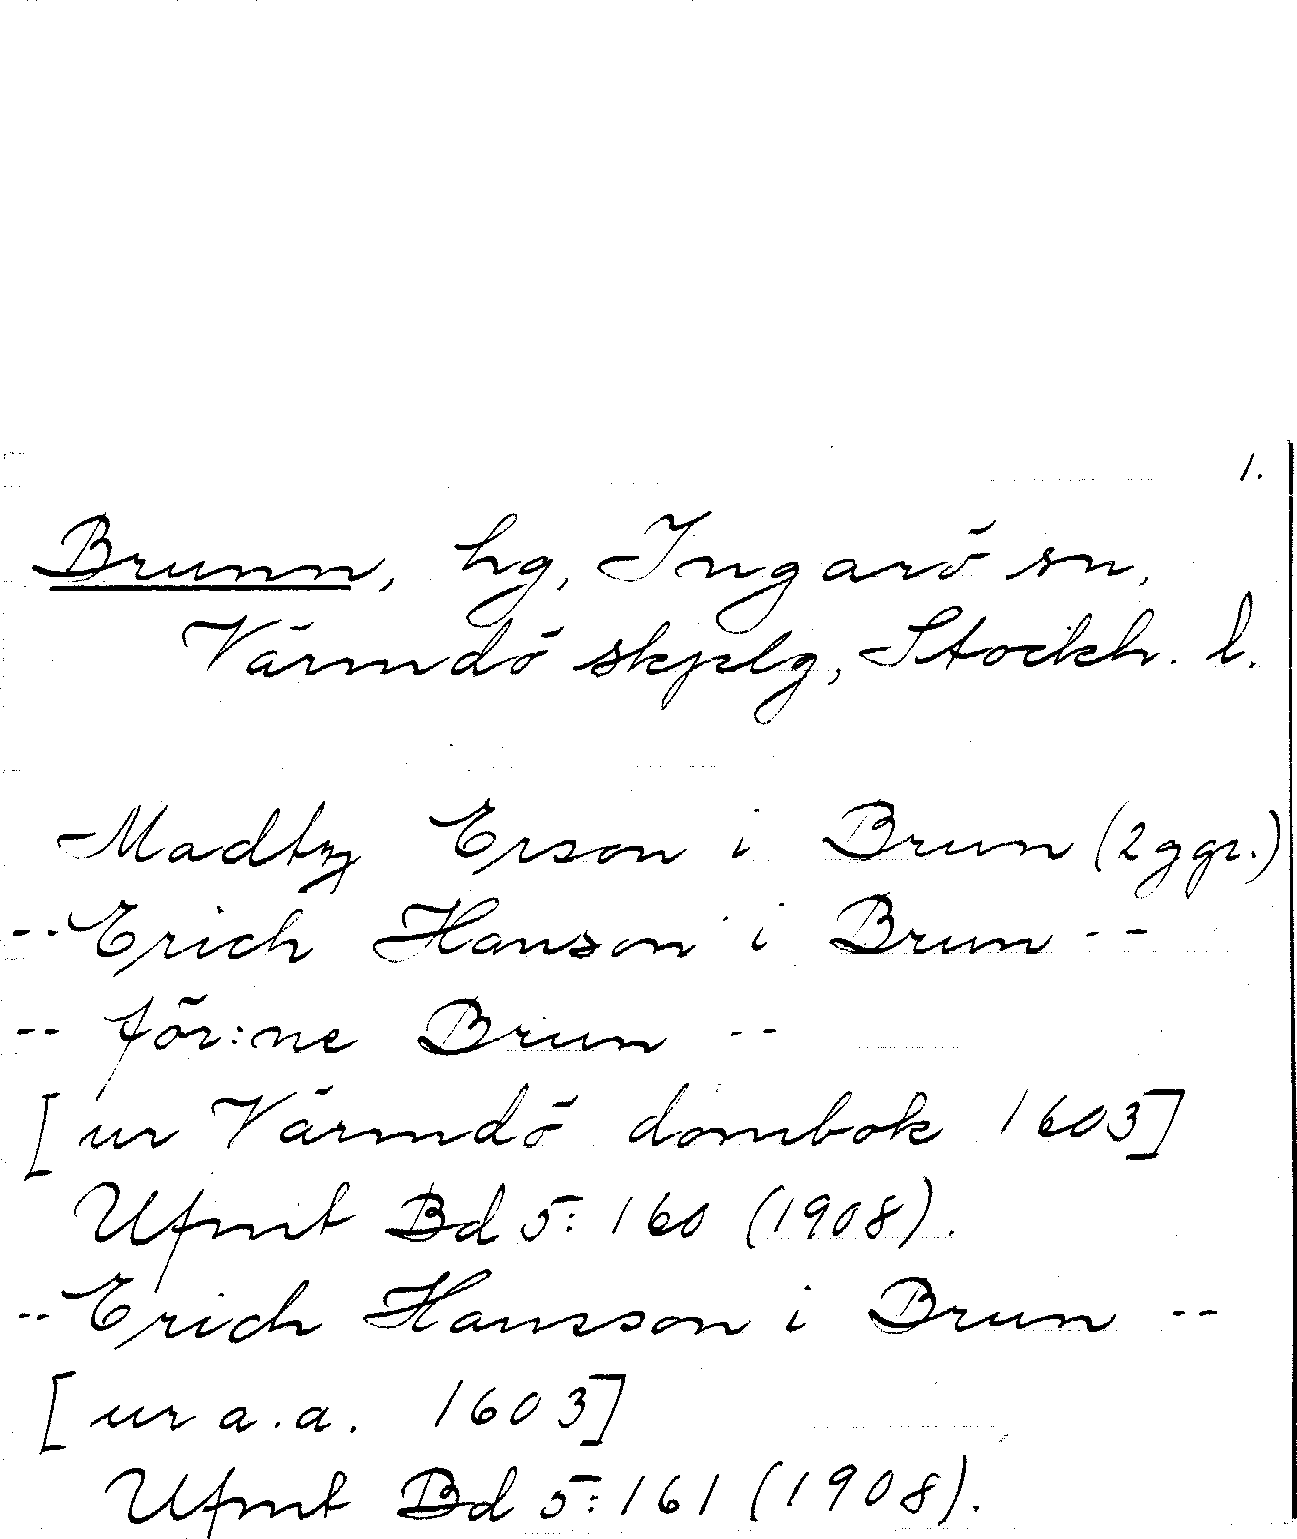 1.
Brunn, hg, Ingarö sn,
Värmdö skplg, Stockh. l.
Madtz Erson i Brun (2 ggr.)
-- Erich Hanson i Brun --
-- för:ne Brun --
[ur Värmdö dombok 1603]
Ufmt Bd 5: 160 (1908).
-- Erich Hansson i Brun --
[ur a.a. 1603]
Ufmt Bd 5: 161 (1908).